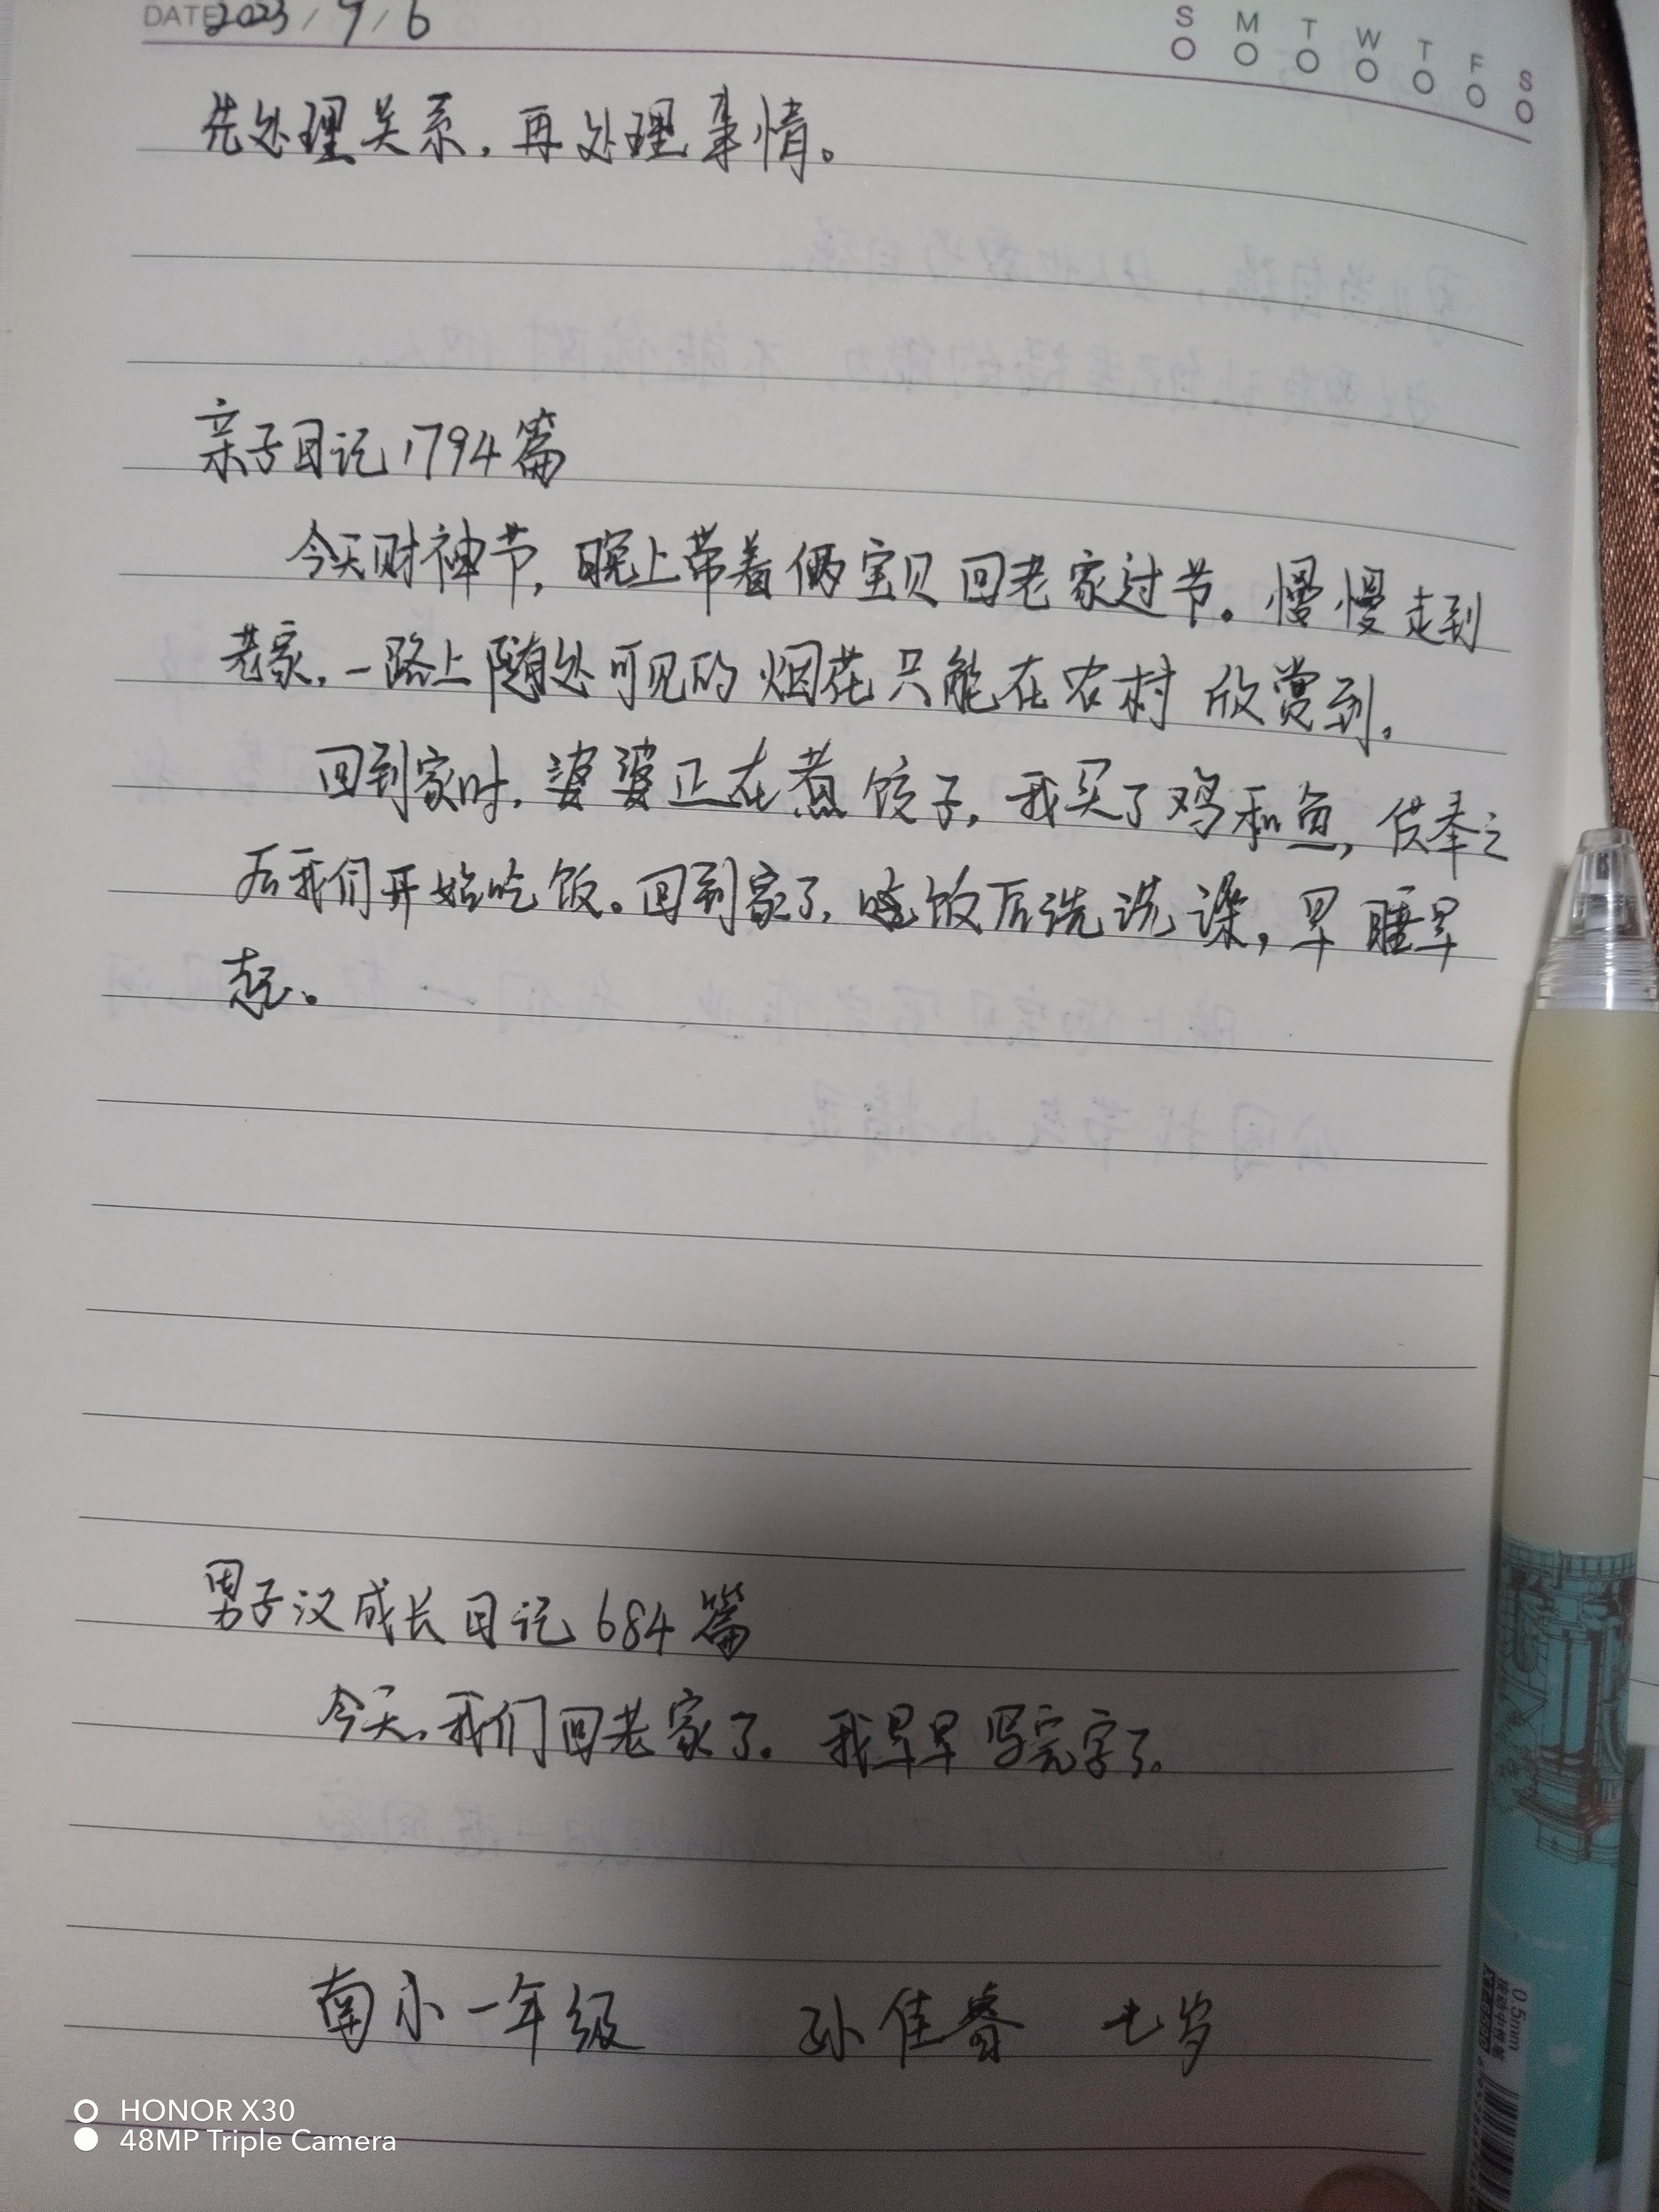 DATE 2023/9/6
S M T W T F S
先处理关系，再处理事情。
亲子日记1794篇
今天财神节，晚上带着俩宝贝回老家过节。慢慢走到
老家，一路上随处可见的烟花只能在农村欣赏到。
回到家时，婆婆正在煮饺子，我买了鸡和鱼，供奉之
后我们开始吃饭。回到家了，吃饭后洗洗澡，早睡早
起。
男子汉成长日记684篇
今天，我们回老家了。我早早写完字了。
南小一年级 孙佳睿 七岁
0.5mm
HONOR X30
48MP Triple Camera